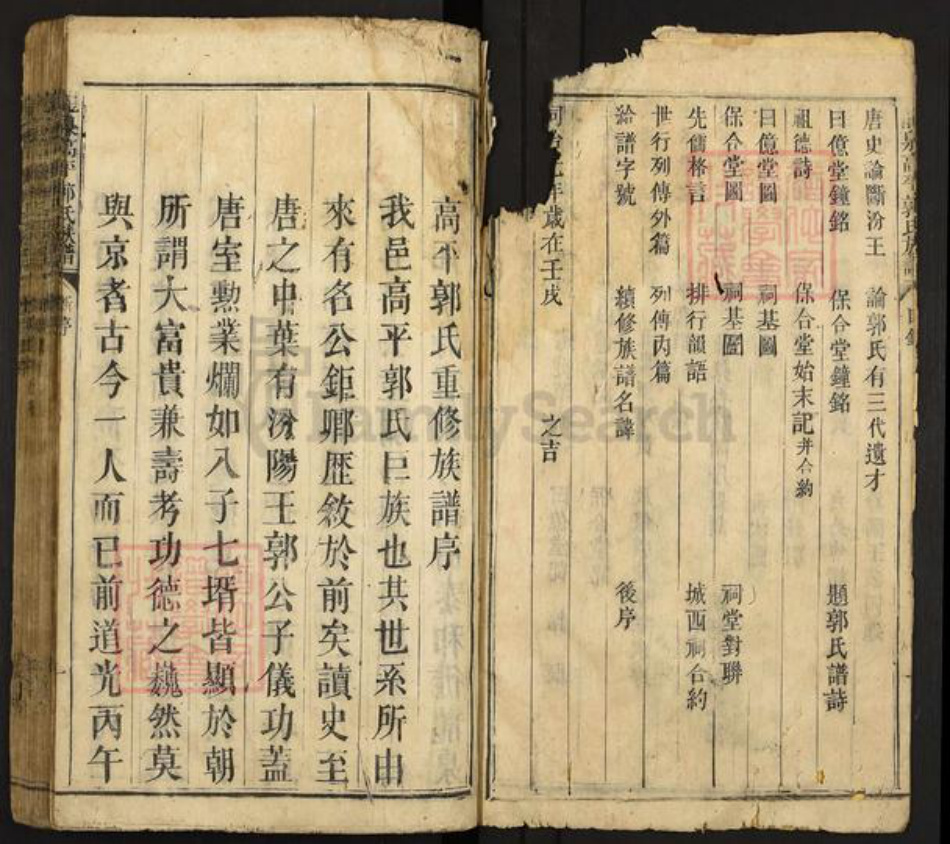 唐史論斷汾王 論郭氏有三代遺才
曰億堂鐘銘 保合堂鐘銘 題郭氏譜詩
祖德詩 保合堂始末記并合約
曰億堂圖 祠基圖
保合堂圖 祠基圖 祠堂對聯
先儒格言 排行韻語 城西祠合約
世行列傳外篇 列傳內篇
給譜字號 續修族譜名諱 後序
年歲在壬戌 之吉
高平郭氏重修族譜序
我邑高平郭氏巨族也其世系所由
來有名公鉅卿歷敘於前矣讀史至
唐之中葉有汾陽王郭公子儀功蓋
唐室勳業爛如八子七壻皆顯於朝
所謂大富貴兼壽考功德之巍然莫
與京者古今一人而已前道光丙午
高平郭氏族譜
FamilySearch